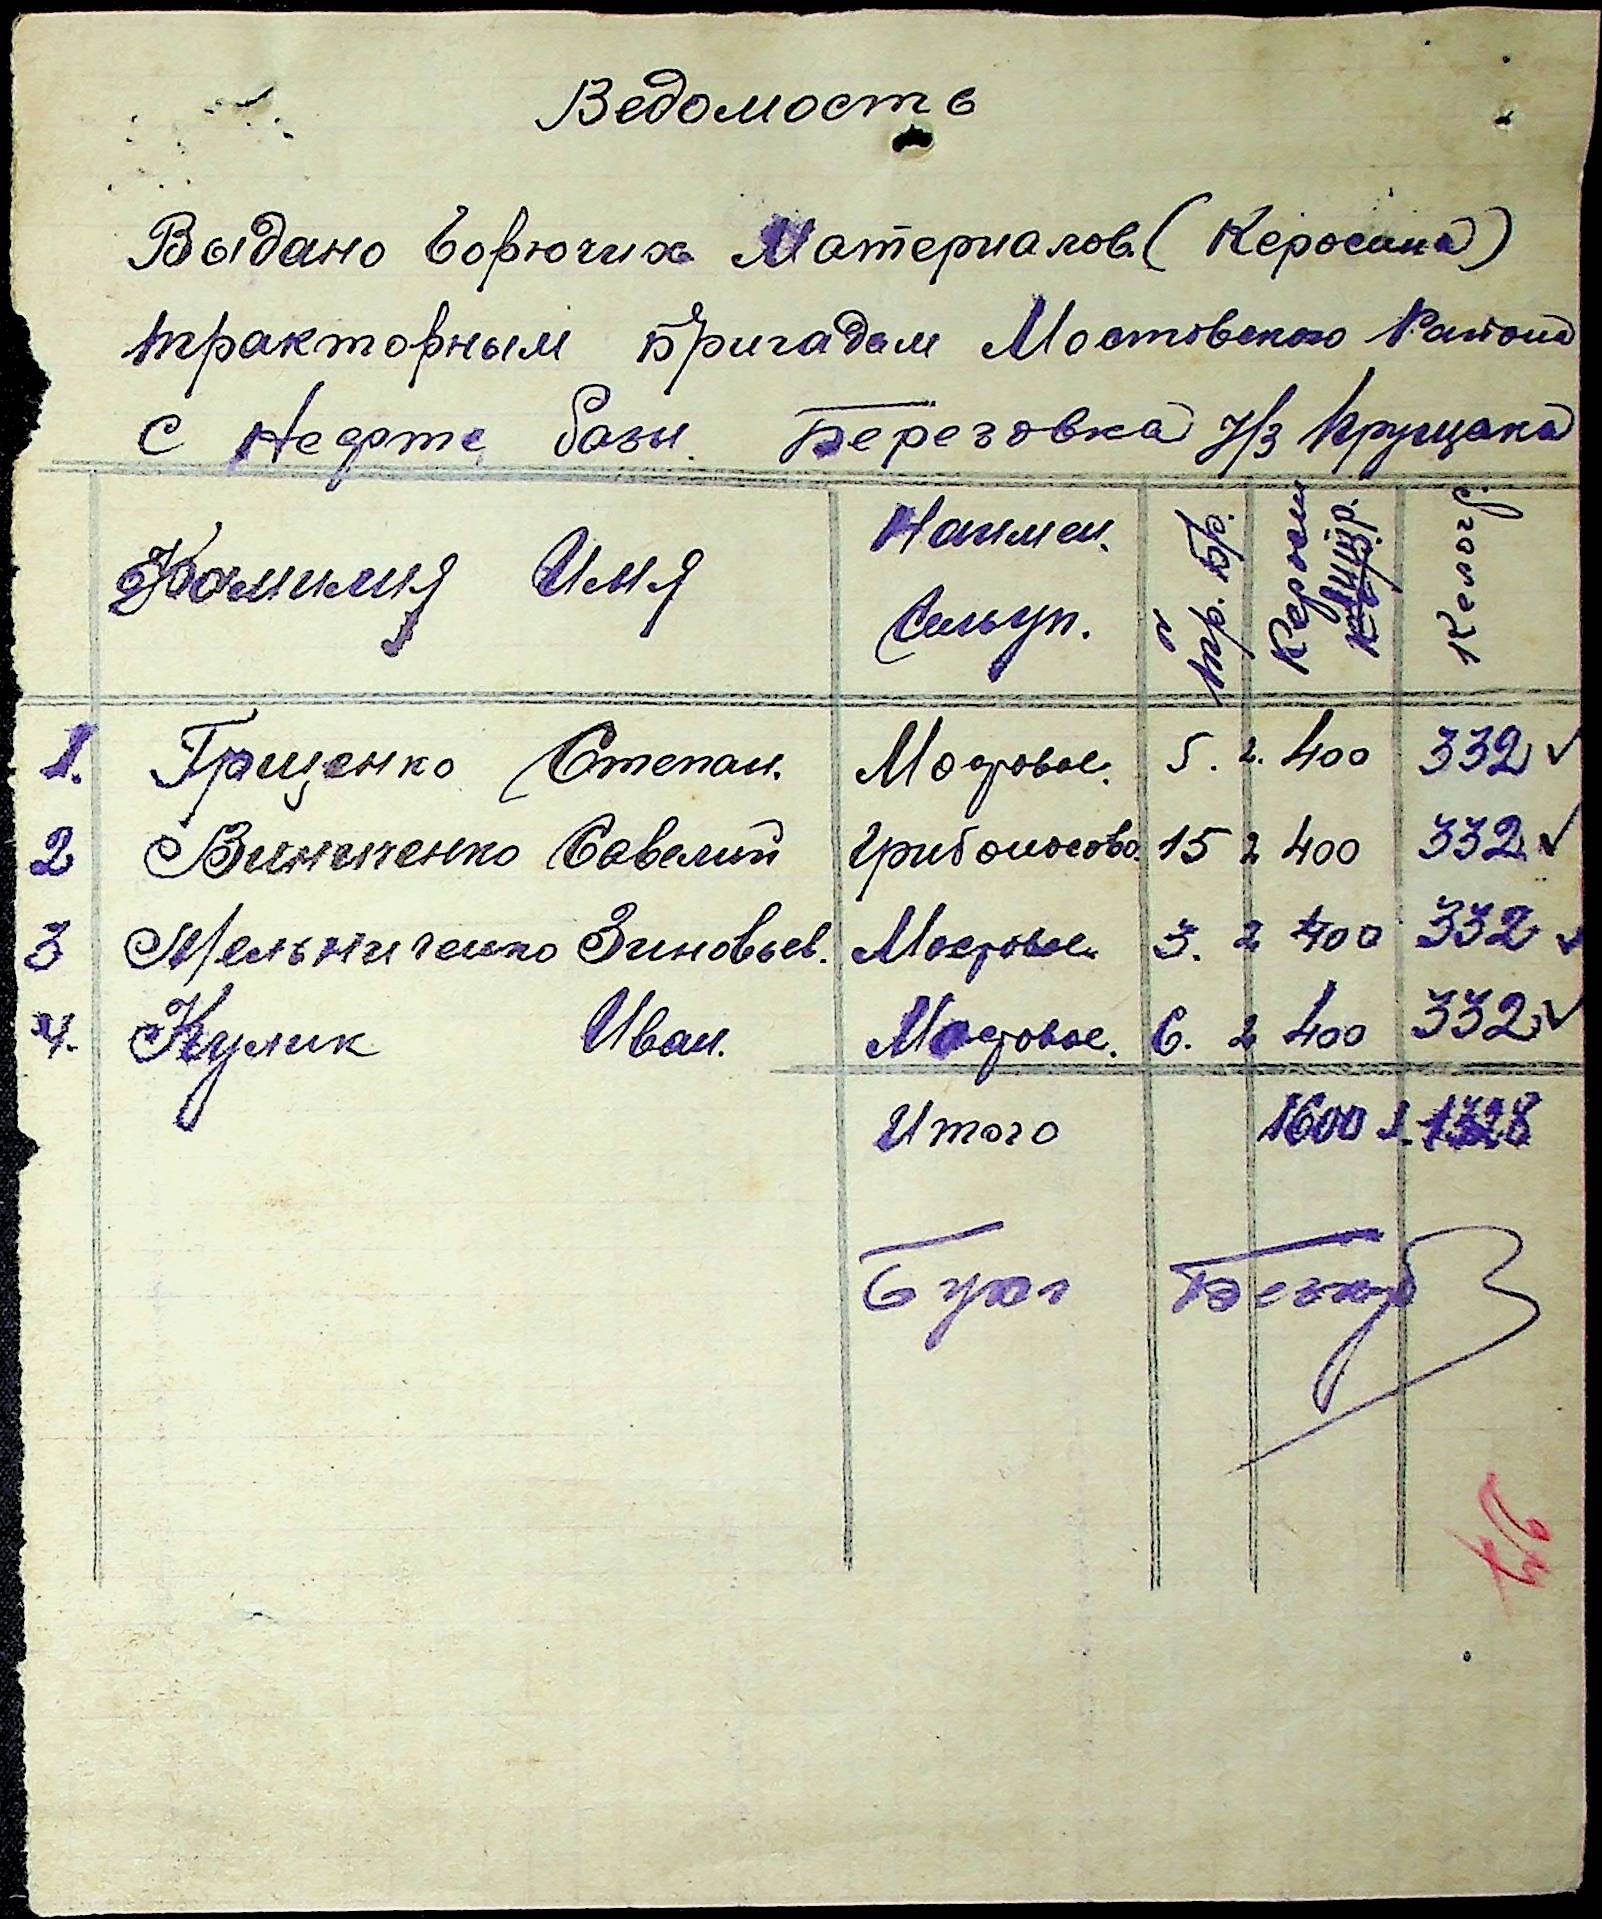 Ведомость
Выдано Горючих Материалов (Керосина)
тракторным Бригадам Мостовского Района
с Нефте базы. Березовка Ч/з Крущака
Фамилия Имя Наимен. Сельуп. № тр. Бр. Керосин Килогр.
1. Грищенко Степан. Мостовое. 5. 2. 400 332 ✓
2 Винниченко Савелий Грибоносово. 15 2 400 332 ✓
3 Мельниченко Зиновьев. Мостовое. 3. 2 400 332 ✓
4. Кулик Иван. Мостовое. 6. 2 400 332 ✓
Итого 1600 л. 1328
Бухг